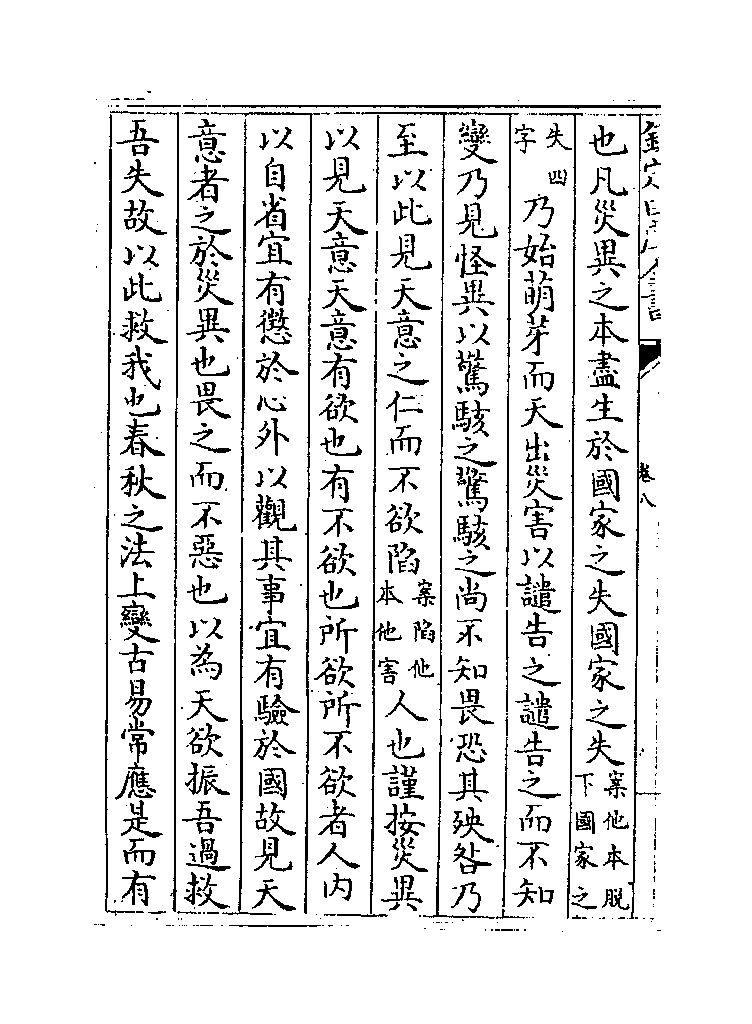 欽定四庫全書
卷八
也凡災異之本盡生於國家之失國家之失案他本脫下國家之
失四字乃始萌芽而天出災害以譴告之譴告之而不知
變乃見怪異以驚駭之驚駭之尚不知畏恐其殃咎乃
至以此見天意之仁而不欲陷案陷他本他害人也謹按災異
以見天意天意有欲也有不欲也所欲所不欲者人内
以自省宜有懲於心外以觀其事宜有驗於國故見天
意者之於災異也畏之而不惡也以為天欲振吾過救
吾失故以此救我也春秋之法上變古易常應是而有